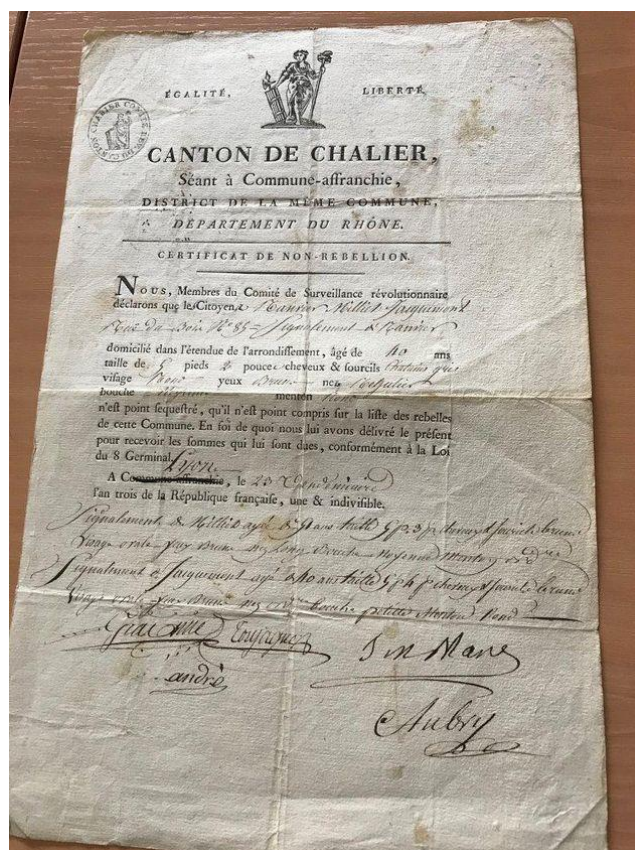 ÉGALITÉ, LIBERTÉ,
CANTON CHALIER COMITÉ
CANTON DE CHALIER,
Séant à Commune-affranchie,
DISTRICT DE LA MÊME COMMUNE,
DÉPARTEMENT DU RHÔNE.
CERTIFICAT DE NON-REBELLION.
NOUS, Membres du Comité de Surveillance révolutionnaire
déclarons que le Citoyen Ranvier Milliet Jacquemont
Rue du Bois No 85 Signalement de Ranvier
domicilié dans l'étendue de l'arrondissement, âgé de 40 ans
taille de 5 pieds 2 pouce cheveux & sourcils Chatains gris
visage Rond yeux Bruns nez Régulier
bouche Moyenne menton Rond
n'est point sequestré, qu'il n'est point compris sur la liste des rebelles
de cette Commune. En foi de quoi nous lui avons délivré le présent
pour recevoir les sommes qui lui sont dues, conformément à la Loi
du 8 Germinal.
Lyon
A Commune-affranchie, le 25 Vendemiaire
l'an trois de la République française, une & indivisible.
Signalement de Milliet agé de 51 ans taille 5 p 3 p cheveux & sourcils bruns
Visage ovale yeux Bruns nez Long Bouche moyenne Menton
Signalement de Jacquemont agé de 40 ans taille 5 p 4 p cheveux & sourcils bruns
Visage ovale yeux Bruns nez bouche petite Menton Rond
André
Aubry